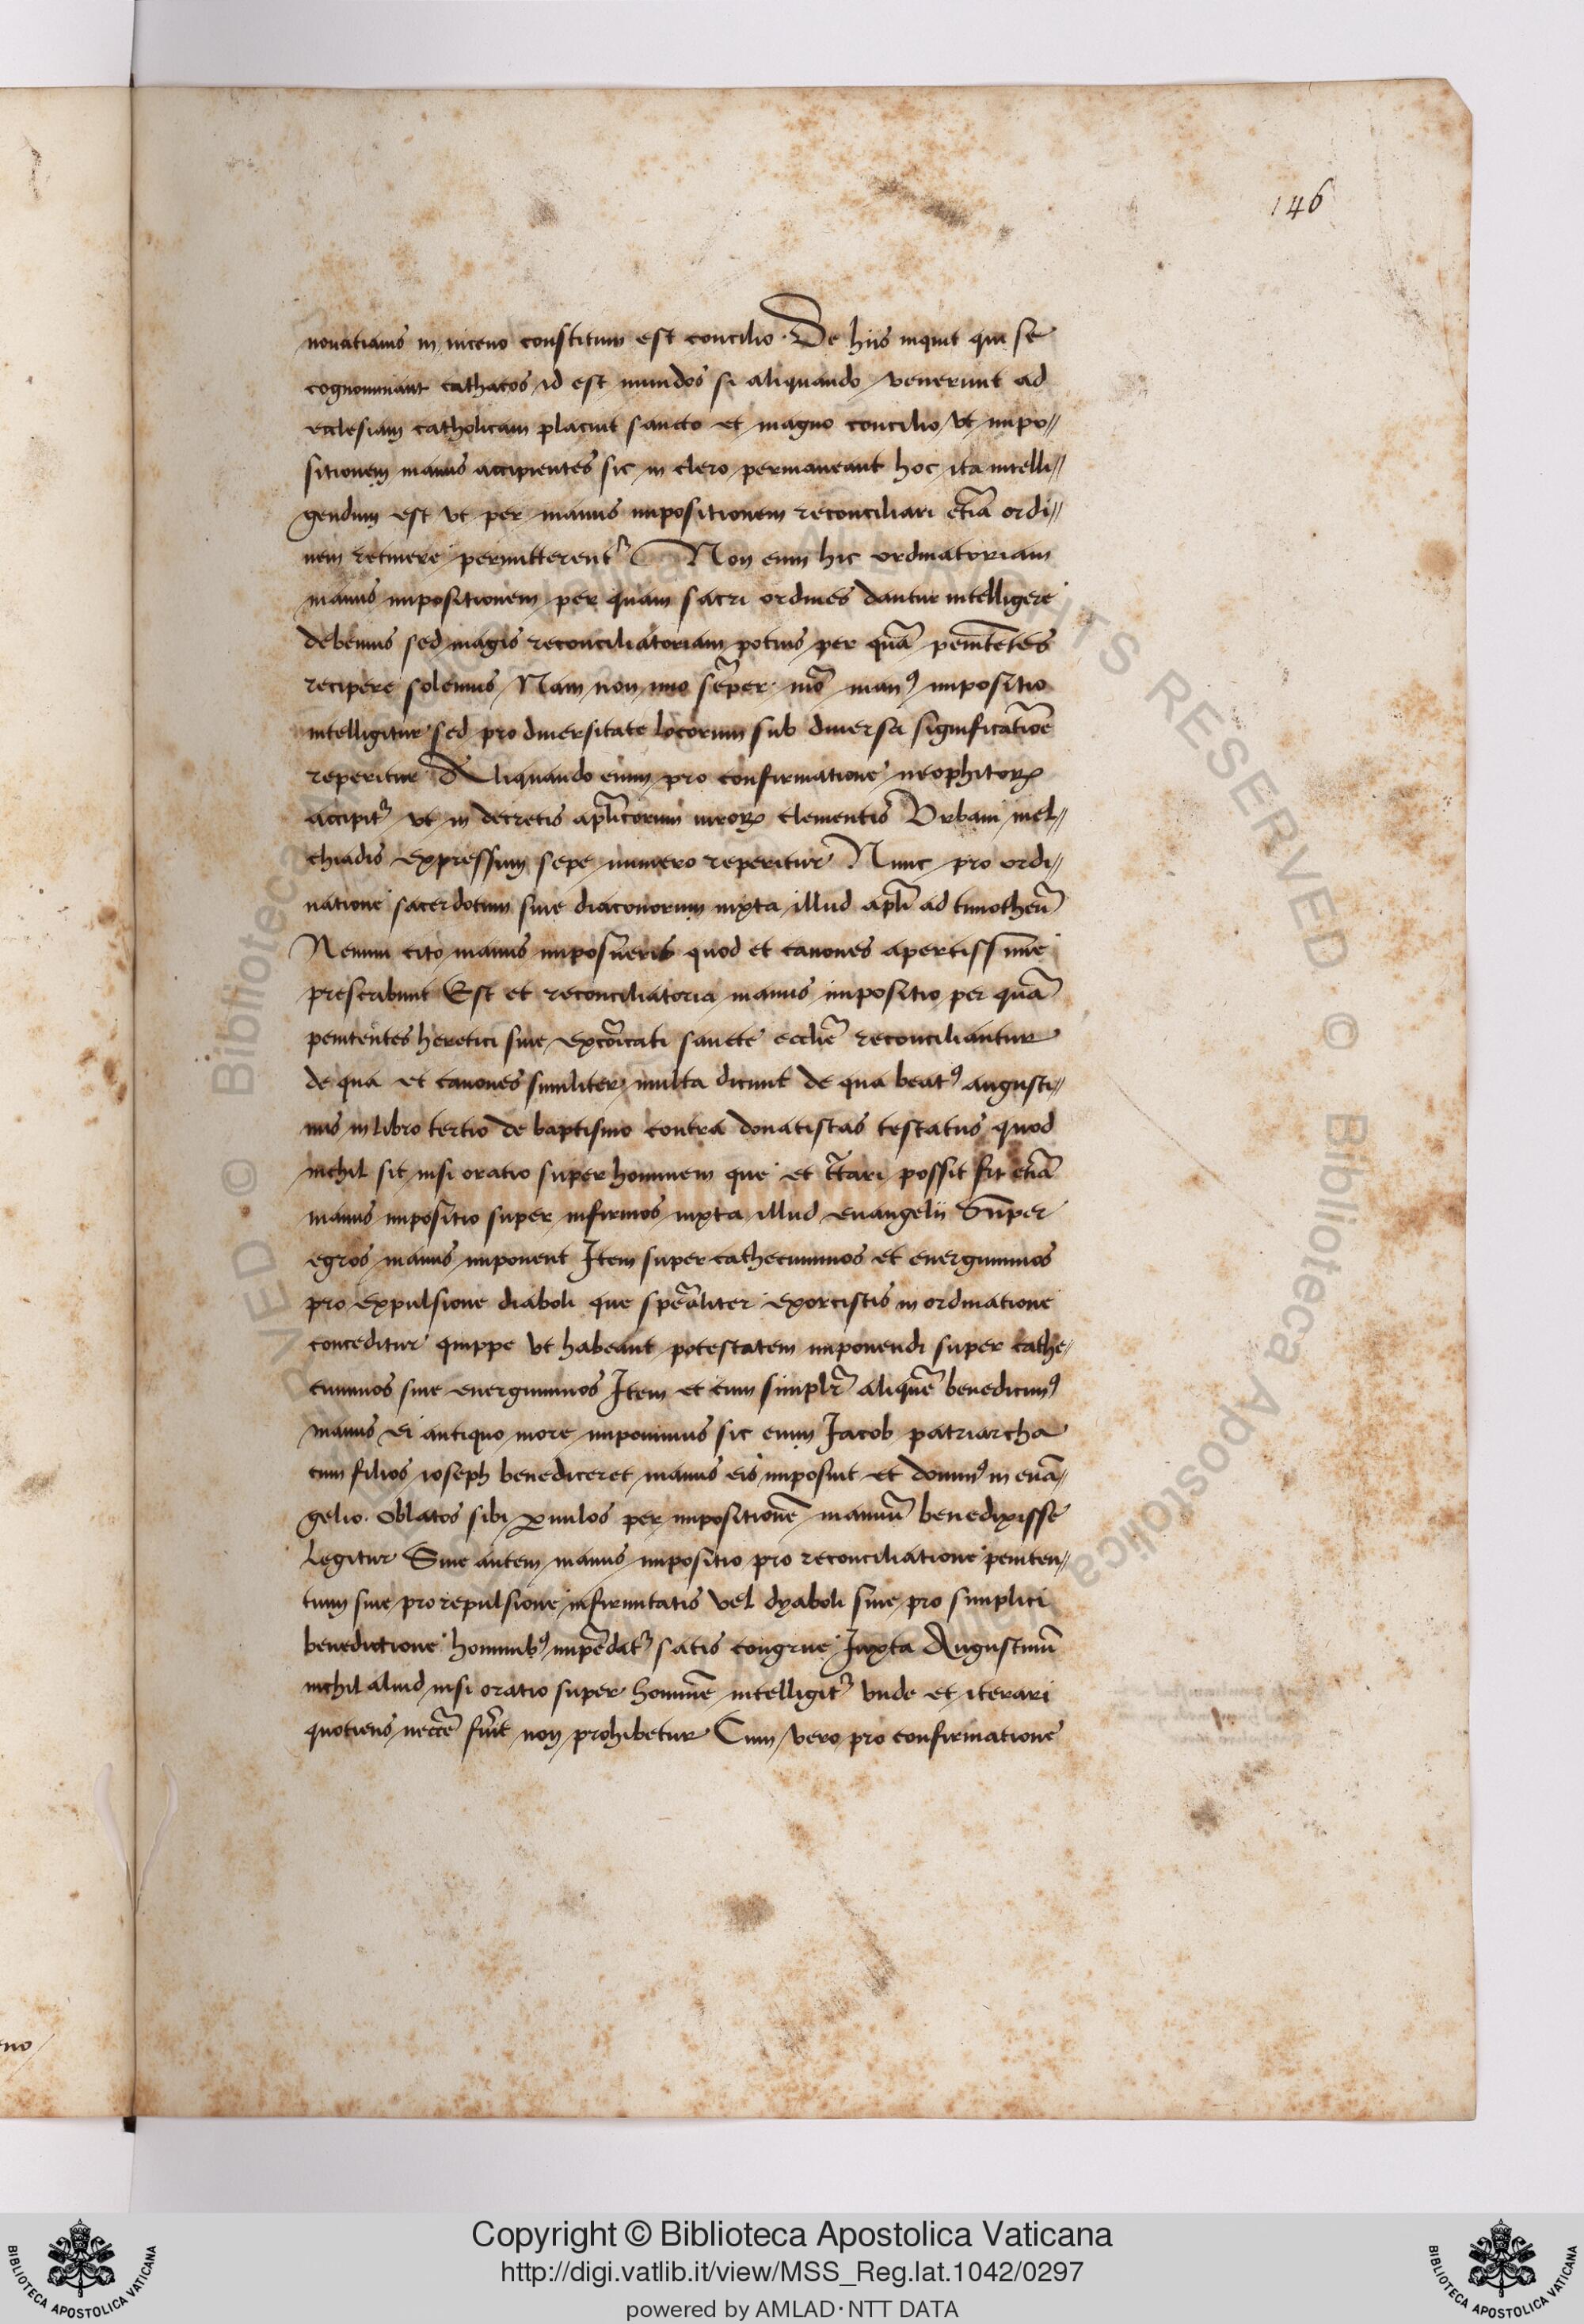 146
nouatianis in niceno constitutum est concilio. De hiis inquit qui se
cognominant catharos id est mundos si aliquando venerunt ad
ecclesiam catholicam placuit sancto et magno concilio vt impo//
sitionem manus accipientes sic in clero permaneant hoc ita intelli//
gendum est vt per manus impositionem reconciliari etiã ordi//
nem retinere permitterent᷑ Non enim hic ordinatoriam
manus impositionem per quam sacri ordines dantur intelligere
debemus sed magis reconciliatoriam potius per quã penitẽtes
recipere solemus Nam non uno sẽper mõ manꝰ impositio
intelligitur sed pro diuersitate locorum sub diuersa significatiõe
reperitur Aliquando enim pro confirmatione neophitoꝝ
accipit᷑ vt in decretis aplicorum viroꝝ clementis Vrbani mel//
chiadis expressum sepe numero reperitur Nunc pro ordi//
natione sacerdotum siue diaconorum iuxta illud apli ad timotheũ
Nemini cito manus imposueris quod et canones apertissime
prescribunt Est et reconciliatoria manus impositio per quã
penitentes heretici siue excõicati sancte ecclie reconciliantur
de qua et canones similiter multa dicunt de qua beatꝰ augusti//
nus in libro tertio de baptismo contra donatistas testatus quod
nichil sit nisi oratio super hominem que et ītari possit fit etiã
manus impositio super infirmos iuxta illud euangelii Super
egros manus imponent Item super cathecuminos et energuminos
pro expulsione diaboli que speãliter exorcistis in ordinatione
conceditur quippe vt habeant potestatem imponendi super cathe//
cuminos siue energuminos Item et cum simplr̃ aliquẽ benedicimꝰ
manus ei antiquo more imponimus sic enim Jacob patriarcha
cum filios ioseph benediceret manus eis imposuit et dominꝰ in euã//
gelio. oblatos sibi ꝑuulos per impositionẽ manuũ benedixisse
legitur Siue autem manus impositio pro reconciliatione peniten//
tium siue pro repulsione infirmitatis vel dyaboli siue pro simplici
benedictione hominibꝰ impẽdat᷑ satis congrue Juxta Augustinũ
nichil aliud nisi oratio super hominẽ intelligit᷑ vnde et iterari
quotiens neccẽ fũit non prohibetur Cum vero pro confirmatione
Copyright © Biblioteca Apostolica Vaticana
http://digi.vatlib.it/view/MSS_Reg.lat.1042/0297
powered by AMLAD·NTT DATA